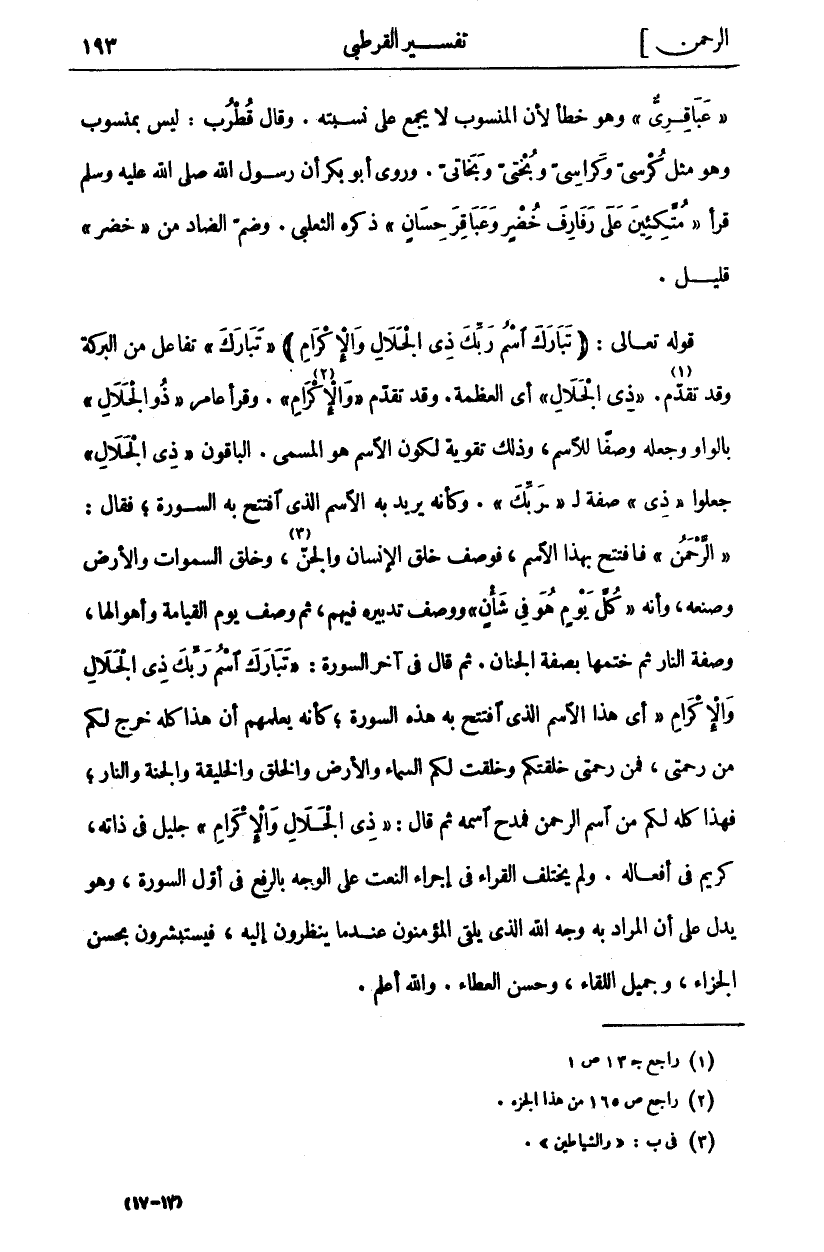 الرحمن ] تفسير القرطبي ١٩٣
« عَبَاقِرِىٌّ » وهو خطأ لأن المنسوب لا يجمع على نسبته . وقال قُطْرُب : ليس بمنسوب
وهو مثل كُرْسىّ وكَراسىّ وبُخْتىّ وبَخَاتىّ . وروى أبو بكر أن رسول الله صلى الله عليه وسلم
قرأ « مُتَّكِئِينَ عَلَى رَفَارِفَ خُضْرٍ وَعَبَاقِرَ حِسَانٍ » ذكره الثعلبى . وضمّ الضاد من « خضر »
قليل .
قوله تعالى : ﴿ تَبَارَكَ ٱسْمُ رَبِّكَ ذِى الْجَلَالِ وَالْإِكْرَامِ ﴾ « تَبَارَكَ » تفاعل من البركة
وقد تقدّم(١). «ذِى الْجَلَالِ» أى العظمة. وقد تقدّم «وَالْإِكْرَامِ»(٢) . وقرأ عامر « ذُو الْجَلَالِ »
بالواو وجعله وصفًا للآسم، وذلك تقوية لكون الآسم هو المسمى . الباقون « ذِى الْجَلَالِ»
جعلوا « ذِى » صفة لـ « رَبِّكَ » . وكأنه يريد به الآسم الذى ٱفتتح به السورة ؛ فقال :
« الرَّحْمَنُ » فافتتح بهذا الآسم ، فوصف خلق الإنسان والجنّ(٣) ، وخلق السموات والأرض
وصنعه، وأنه « كُلَّ يَوْمٍ هُوَ فِى شَأْنٍ» ووصف تدبيره فيهم، ثم وصف يوم القيامة وأهوالها،
وصفة النار ثم ختمها بصفة الجنان . ثم قال فى آخر السورة : «تَبَارَكَ ٱسْمُ رَبِّكَ ذِى الْجَلَالِ
وَالْإِكْرَامِ » أى هذا الآسم الذى ٱفتتح به هذه السورة ؛ كأنه يعلمهم أن هذا كله خرج لكم
من رحمتى ، فمن رحمتى خلقتكم وخلقت لكم السماء والأرض والخلق والخليقة والجنة والنار ؛
فهذا كله لكم من ٱسم الرحمن فمدح ٱسمه ثم قال : « ذِى الْجَلَالِ وَالْإِكْرَامِ » جليل فى ذاته،
كريم فى أفعاله . ولم يختلف القراء فى إجراء النعت على الوجه بالرفع فى أوّل السورة ، وهو
يدل على أن المراد به وجه الله الذى يلقى المؤمنون عندما ينظرون إليه ، فيستبشرون بحسن
الجزاء ، وجميل اللقاء ، وحسن العطاء . والله أعلم .
(١) راجع جـ ١٣ ص ١
(٢) راجع ص ١٦٥ من هذا الجزء .
(٣) فى ب : « والشياطين » .
(١٣-١٧)